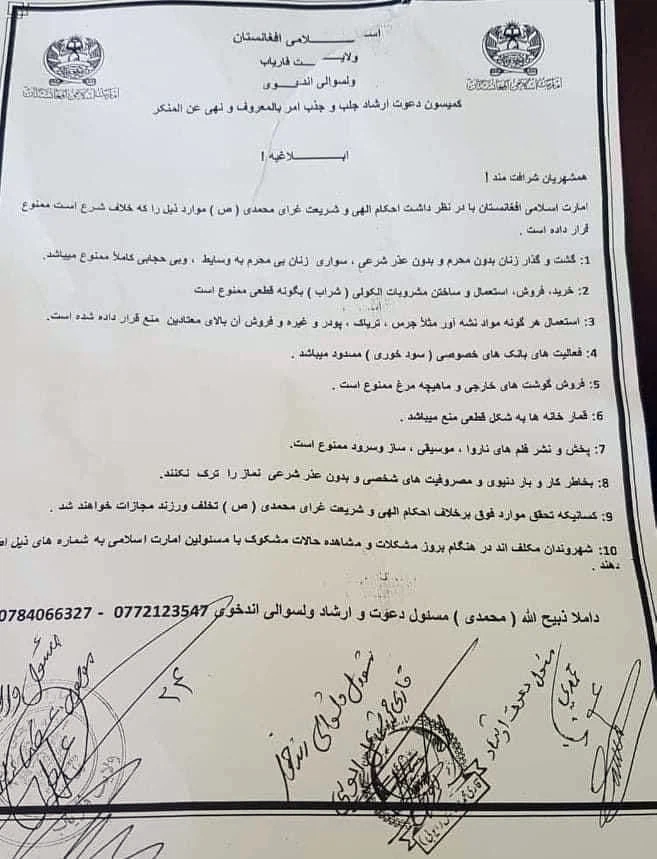 اســـلامی افغانستان
ولایـــت فاریاب
ولسوالی اندخـــوی
کمیسون دعوت ارشاد جلب و جذب امر بالمعروف و نهی عن المنکر
ابـــلاغیه !
همشهریان شرافت مند !
امارت اسلامی افغانستان با در نظر داشت احکام الهی و شریعت غرای محمدی ( ص ) موارد ذیل را که خلاف شرع است ممنوع
قرار داده است .
1: گشت و گذار زنان بدون محرم و بدون عذر شرعی ، سواری زنان بی محرم به وسایط ، وبی حجابی کاملاً ممنوع میباشد.
2: خرید، فروش، استعمال و ساختن مشروبات الکولی ( شراب ) بگونه قطعی ممنوع است
3: استعمال هر گونه مواد نشه آور مثلاً چرس ، تریاک ، پودر و غیره و فروش آن بالای معتادین منع قرار داده شده است.
4: فعالیت های بانک های خصوصی ( سود خوری ) مسدود میباشد .
5: فروش گوشت های خارجی و ماهیچه مرغ ممنوع است .
6: قمار خانه ها به شکل قطعی منع میباشد .
7: پخش و نشر فلم های ناروا ، موسیقی ، ساز وسرود ممنوع است.
8: بخاطر کار و بار دنیوی و مصروفیت های شخصی و بدون عذر شرعی نماز را ترک نکنند.
9: کسانیکه تحقق موارد فوق برخلاف احکام الهی و شریعت غرای محمدی ( ص ) تخلف ورزند مجازات خواهند شد .
10: شهروندان مکلف اند در هنگام بروز مشکلات و مشاهده حالات مشکوک با مسئولین امارت اسلامی به شماره های ذیل
دهند .
داملا ذبیح الله ( محمدی ) مسئول دعوت و ارشاد ولسوالی اندخوی 0772123547 - 0784066327
مسئول دعوت ارشاد